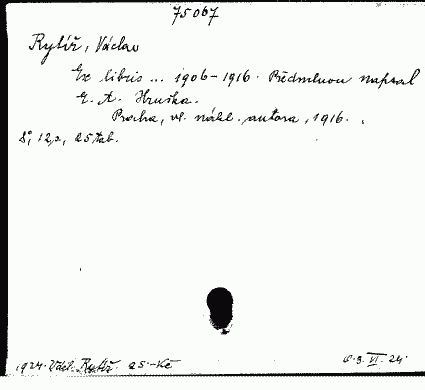 75067
Rytíř, Václav
Ex libris ... 1906-1916. Předmluvou napsal
E. A. Hruška.
Praha, vl. nákl. autora, 1916.
8°, 12 s, 25 tab.
1924. Václ. Rytíř. 25.-Kč
3. VI. 24.